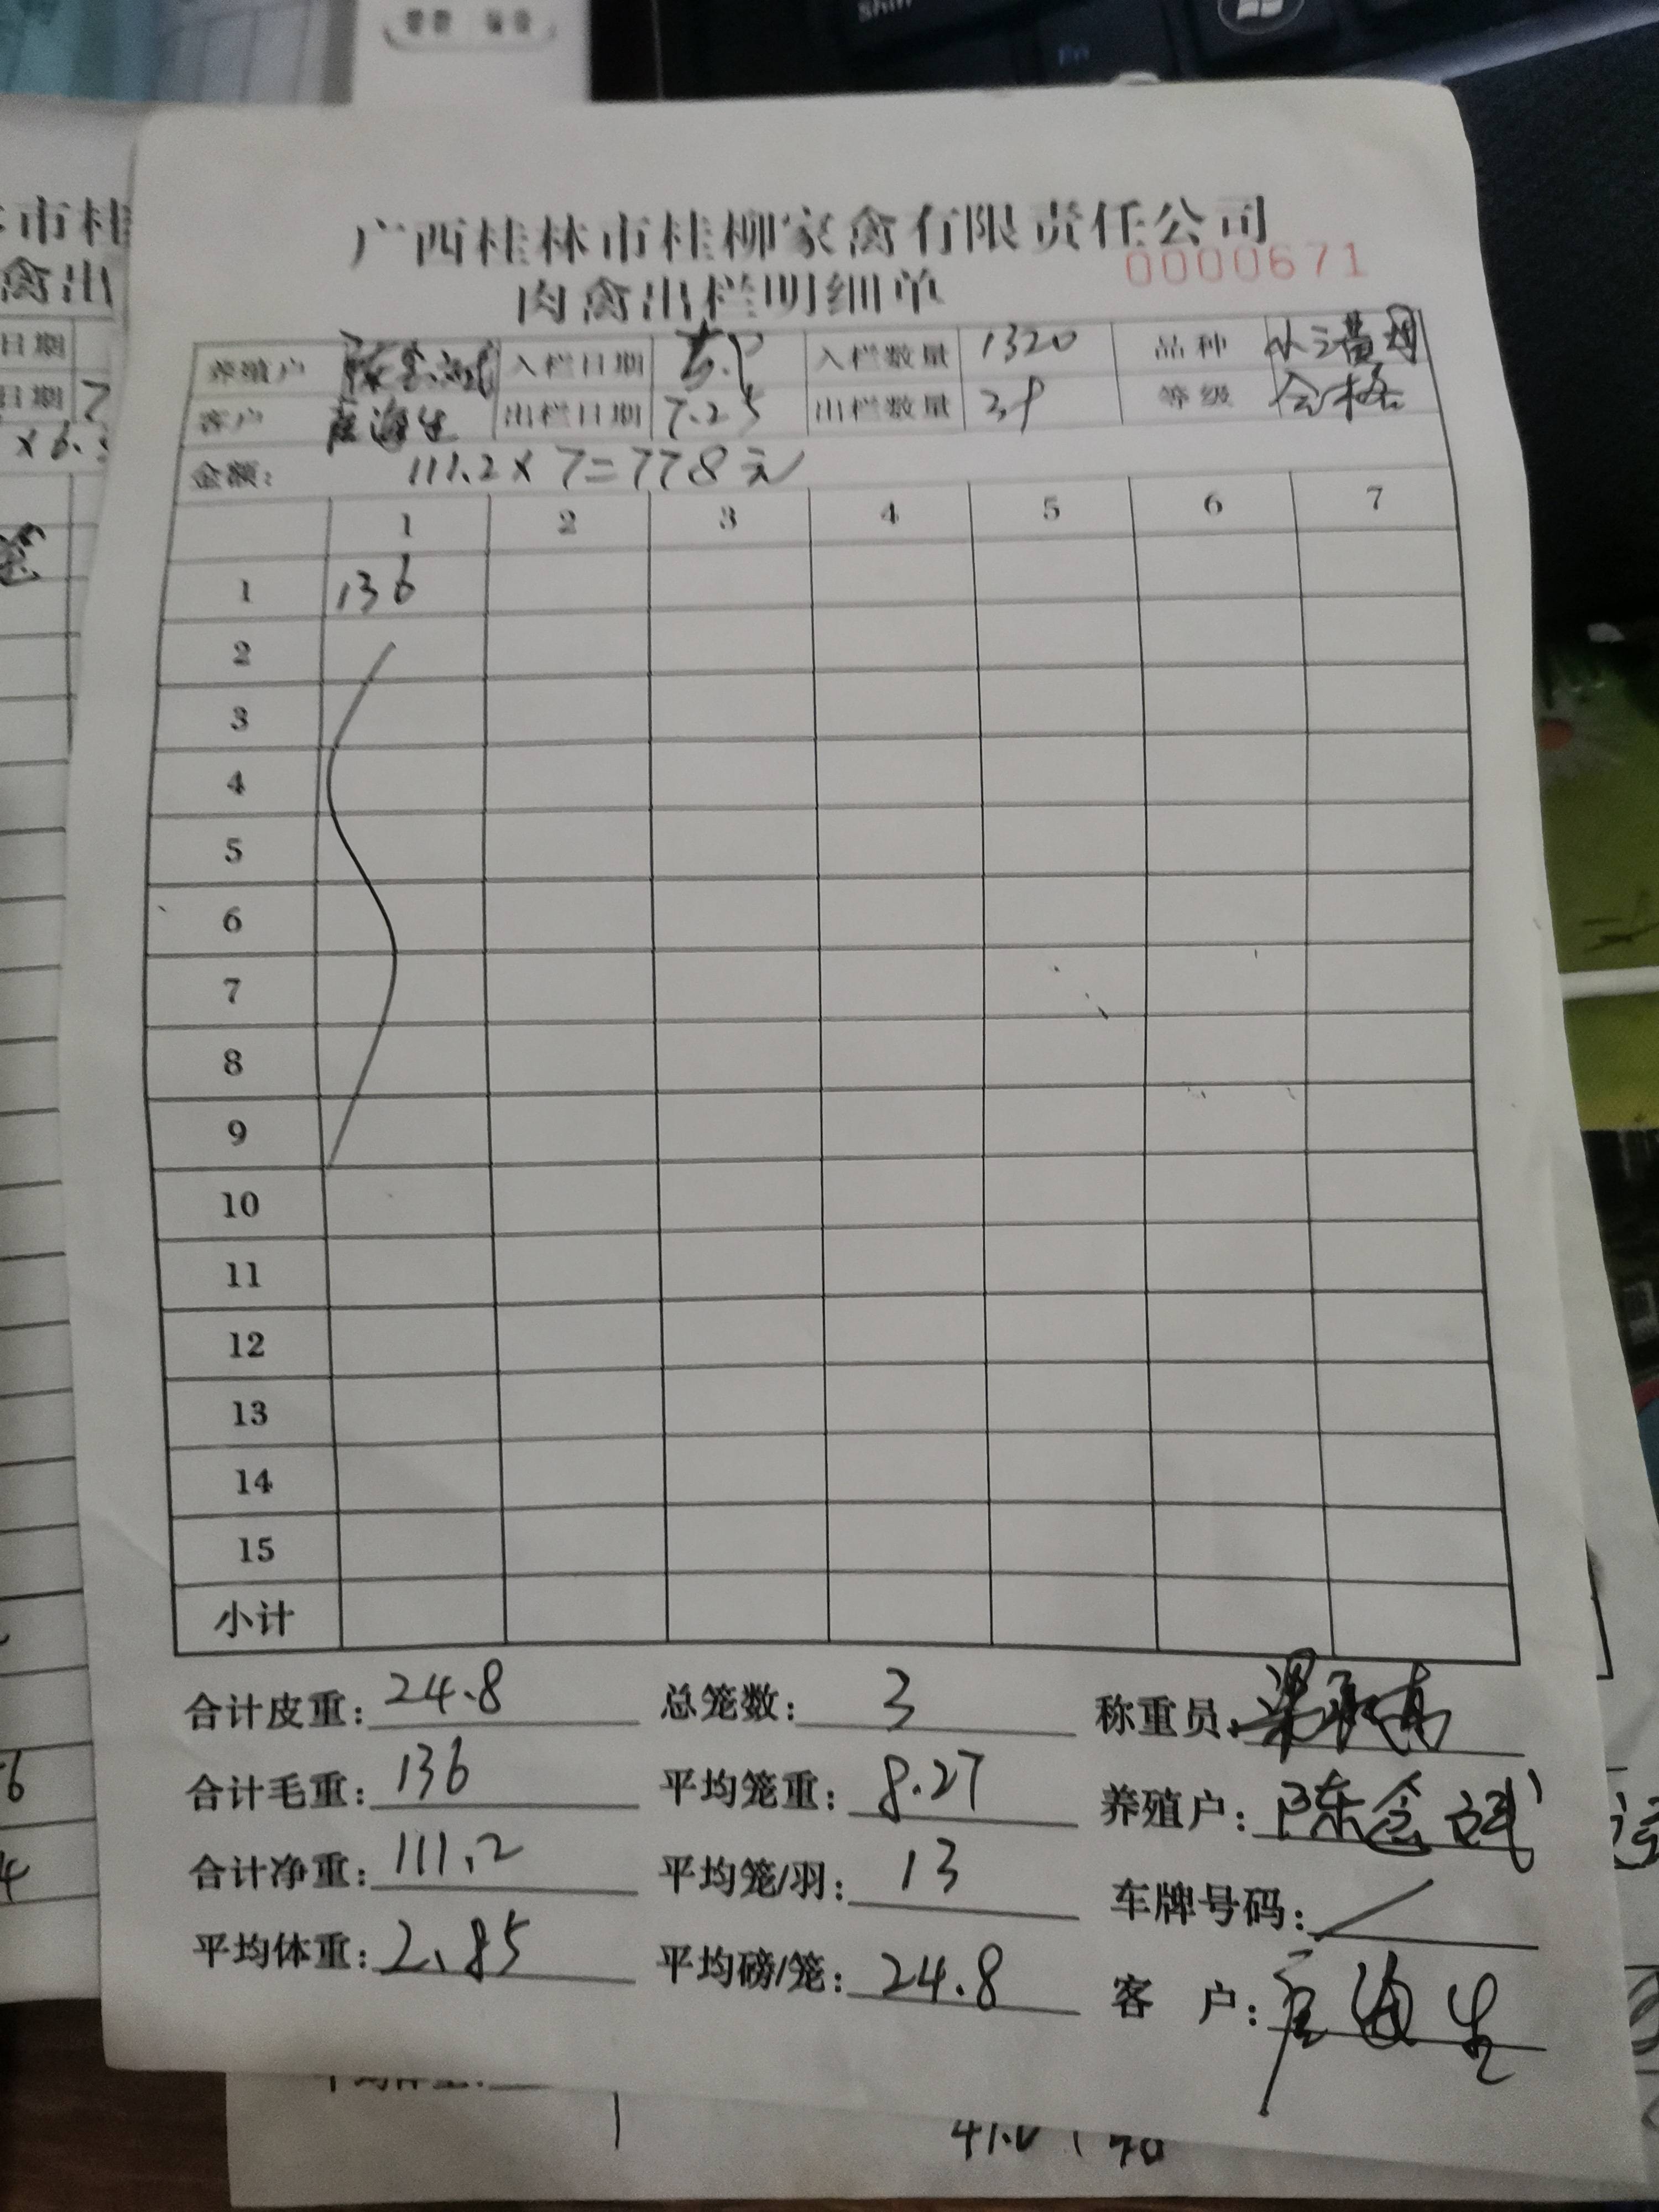 shift
Fn
市桂
禽出
日期
日期 7
广西桂林市桂柳家禽有限责任公司
0000671
肉禽出栏明细单
养殖户 入栏日期 入栏数量 1320 品种
客户 出栏日期 7.25 出栏数量 39 等级 合格
金额: 111.2×7=778元
1 2 3 4 5 6 7
1 136
2
3
4
5
6
7
8
9
10
11
12
13
14
15
小计
合计皮重: 24.8 总笼数: 3 称重员:
合计毛重: 136 平均笼重: 8.27 养殖户: 陈
合计净重: 111.2 平均笼/羽: 13 车牌号码: /
平均体重: 2.85 平均磅/笼: 24.8 客 户: